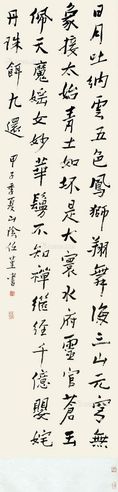 日月吐納雲五色鳳獅翔舞海三山元穹無
象接太始青土如坏是大寰水府靈官蒼玉
佩天魔媱女妙華鬘不知禪縱經千億嬰姹
丹珠餌九還
甲子季夏山陰任堇書